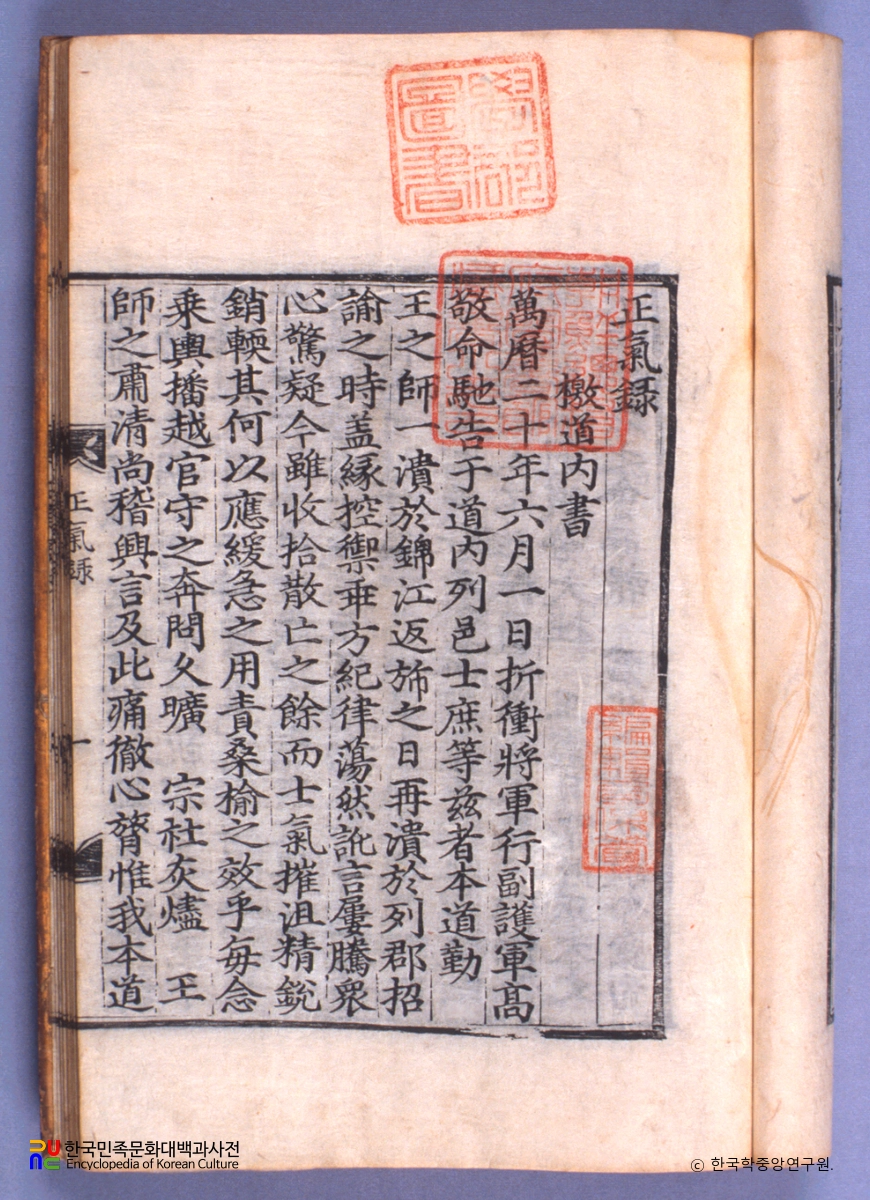 正氣錄
檄道內書
萬曆二十年六月一日折衝將軍行副護軍高
敬命馳告于道內列邑士庶等玆者本道勤
王之師一潰於錦江返斾之日再潰於列郡招
諭之時盖緣控禦乖方紀律蕩然訛言屢騰衆
心驚疑今雖收拾散亡之餘而士氣摧沮精銳
銷輭其何以應緩急之用責桑楡之效乎每念
乘輿播越官守之奔問久曠 宗社灰燼 王
師之肅清尚稽興言及此痛徹心膂惟我本道
正氣錄
一
한국민족문화대백과사전
Encyclopedia of Korean Culture
© 한국학중앙연구원.